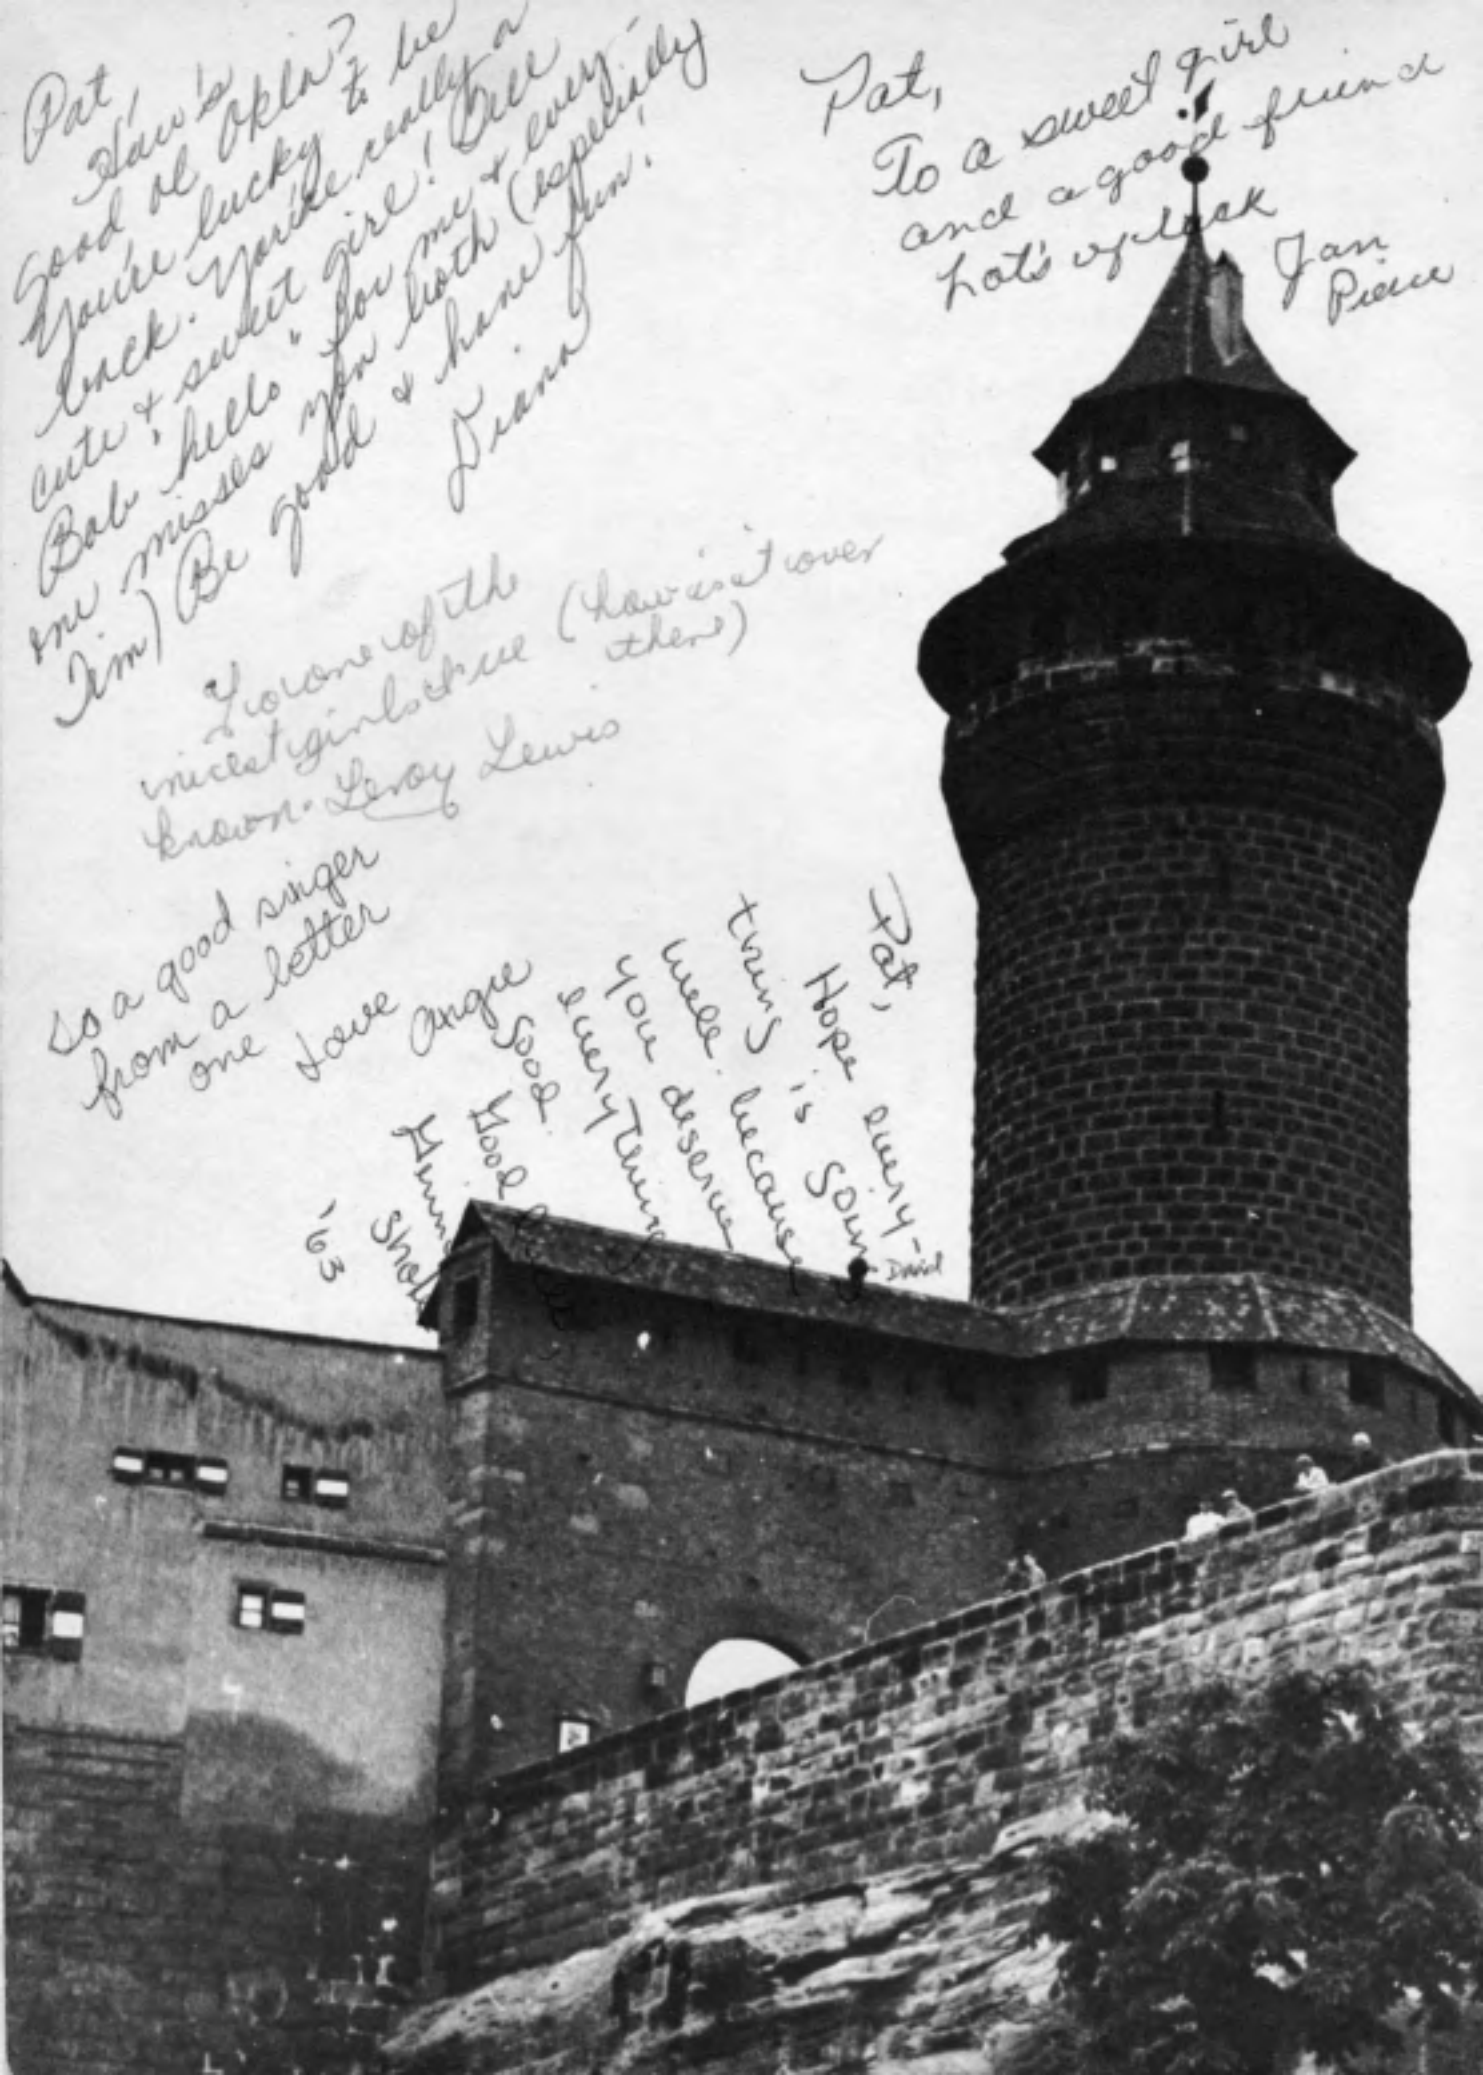 Pat,
How's
good ol Okla?
You're lucky to be
back. You're really a
cute & sweet girl! Tell
Bob "hello" for me & every-
one misses you both (especially
Jim) Be good & have fun!
Diann
Pat,
To a sweet girl
and a good friend
Lot's of luck
Jan
Pierce
To one of the
nicest girls I've (how is it over
there)
known. Leroy Lewis
To a good singer
from a better
one
Love
Angie
Pat,
Hope every-
thing is going
well. because
you deserve
everything
good.
Good
'63
David